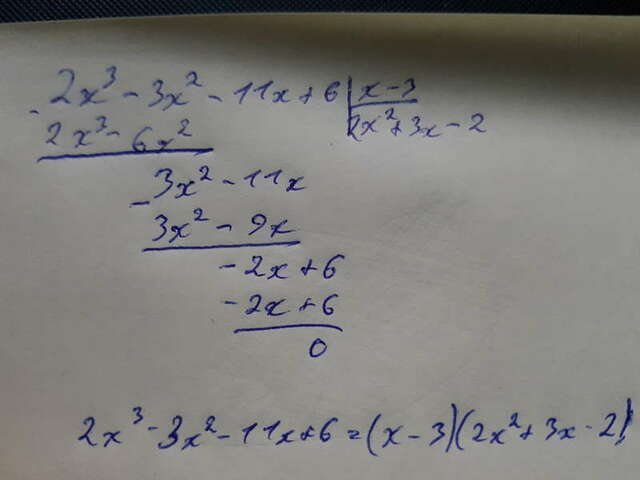 2x³ - 3x² - 11x + 6 | x - 3
- 2x³ - 6x² | 2x² + 3x - 2
3x² - 11x
- 3x² - 9x
-2x + 6
-2x + 6
0
2x³ - 3x² - 11x + 6 = (x - 3)(2x² + 3x - 2)